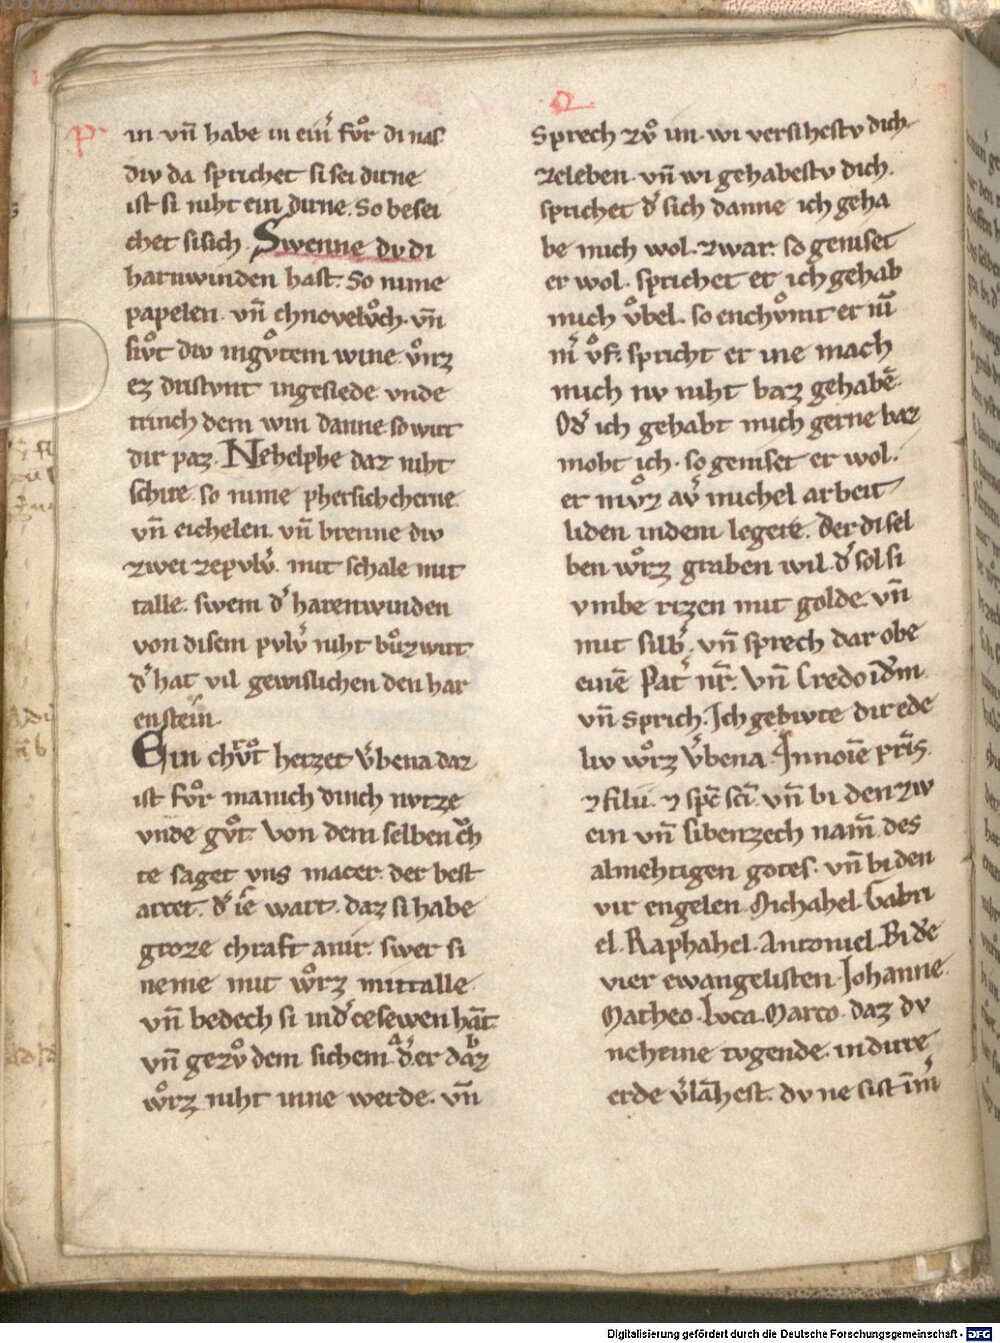 P
in vn̄ habe in einͮ fuͦr di nas
div da sprichet si sei dirne
ist si niht ein dirne. So besei
chet si sich. Swenne dv di
harnwinden hast. So nime
papelen. vn̄ chnoveloͮch. vn̄
sivͦt div in gvͦtem wine. vͦnz
ez dristvnt in gesiede. vnde
trinch dem win danne so wirt
dir paz. Nehelphe daz niht
schire. so nime phersichcherne
vn̄ eichelen. vn̄ brenne div
zwei zepvlvͦ. mit schale mit
talle. swem dͦ harenwinden
von disem pvlvͦ niht bvͦz wirt
dͦ hat vil gewislichen den har
enstein.
Ein chrvͦt heizet vͦbena daz
ist fuͦr manich dinch nvtze
vnde gvͦt. Von dem selben
te saget vns macer. der best
arzet. dͦ ie wart. daz si habe
groze chraft an ir. swer si
neme mit woͦrz mittalle.
vn̄ bedech si in dͦ cesewen hāt
vn̄ gezvͦ dem sichem. dͦ. er daz
woͦrz niht inne werde. vn̄
Q
Sprech zvͦ im. wi versihestv dich
zeleben. vn̄ wi gehabestv dich.
sprichet dͦ sich danne ich geha
be mich wol. zwar. so geniset
er wol. sprichet er ich gehab
mich vͦbel. so enchvͦmt er niv̄
mͦ vͦf. spricht er ine mach
mich nv niht baz gehabē.
Odͦ ich gehabt mich gerne baz
moht ich. so geniset er wol.
er mvͦz avͦ michel arbeit
liden in dem legere. Der di sel
ben woͦrz graben wil dͦ sol si
vmbe rizen mit golde. vn̄
mit silbͦ. vn̄ sprech dar obe
einē Patͦ nr̄. vn̄ Credo īdm̄.
vn̄ sprich. Ich gebivte dir ede
liv woͦrz vͦbena. Innoīe pr̄is
⁊ filii. ⁊ sp̄c sc̄i. vn̄ bi den zw
ein vn̄ sibenzech nam̄. des
almehtigen gotes. vn̄ bi den
vir engelen. Michahel. Gabri
el. Raphahel. Antoniel. Bi dͦe
vier ewangelisten. Johanne.
Matheo. Lvca. Marco. daz dv
neheine tvgende. in dirre
erde vͦlāhest. dv ne sist īmͦ
Digitalisierung gefördert durch die Deutsche Forschungsgemeinschaft - DFG